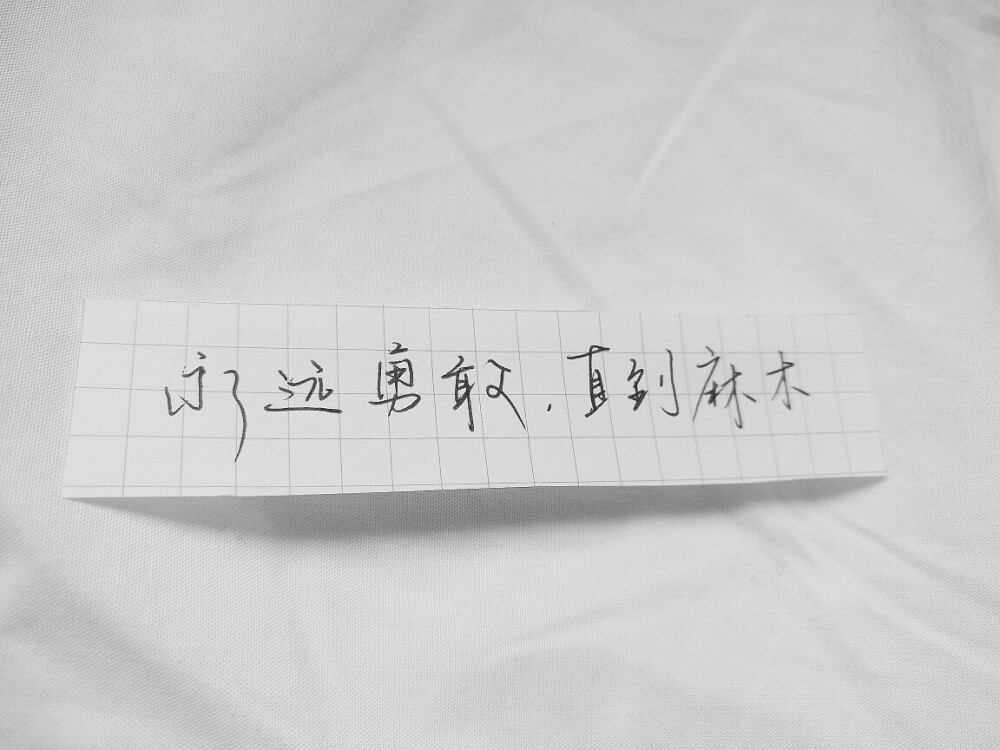 永远勇敢，直到麻木